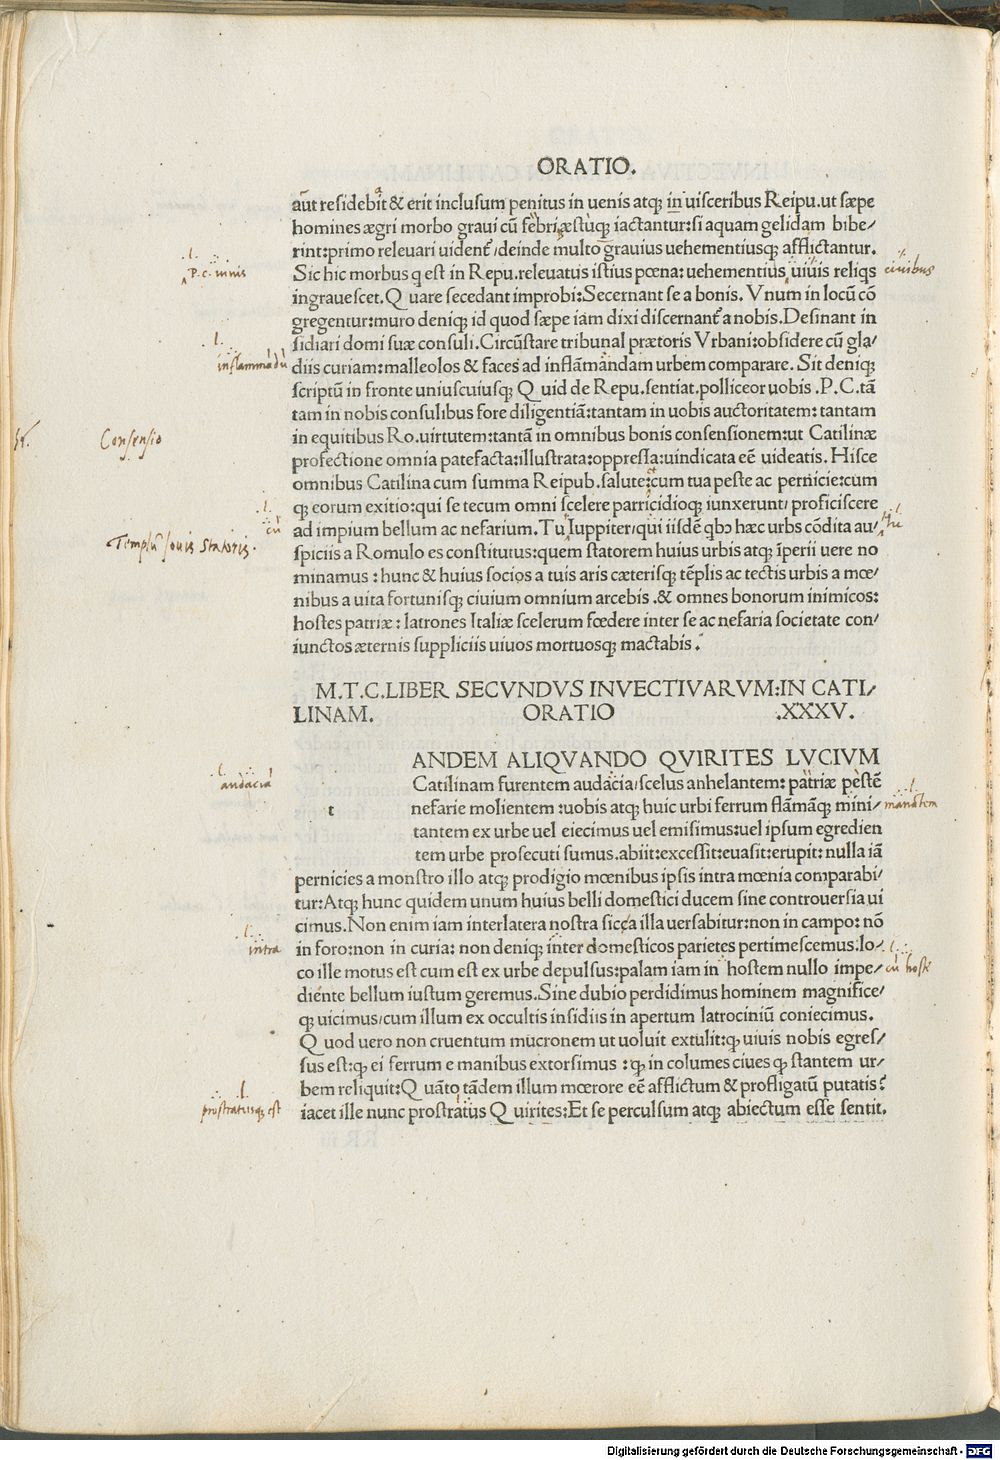 ORATIO.
aūt residebit & erit inclusum penitus in uenis atq; in uisceribus Reipu. ut sæpe
homines ægri morbo graui cū febriæstuq; iactantur: si aquam gelidam bibe/
rint: primo releuari uidenť / deinde multo grauius uehementiusq; afflictantur.
Sic hic morbus q est in Repu. releuatus istius pœna: uehementius uiuis reliqs
ingrauescet. Q uare secedant improbi: Secernant se a bonis. Vnum in locū cō
gregentur: muro deniq; id quod sæpe iam dixi discernanť a nobis. Desinant in
sidiari domi suæ consuli. Circūstare tribunal prætoris Vrbani: obsidere cū gla/
diis curiam: malleolos & faces ad inflāmandam urbem comparare. Sit deniq;
scriptū in fronte uniuscuiusq; Q uid de Repu. sentiat. polliceor uobis .P.C. tā
tam in nobis consulibus fore diligentiā: tantam in uobis auctoritatem: tantam
in equitibus Ro. uirtutem: tantā in omnibus bonis consensionem: ut Catilinæ
profectione omnia patefacta: illustrata: oppressa: uindicata eē uideatis. Hisce
omnibus Catilina cum summa Reipub. salute: cum tua peste ac pernicie: cum
q; eorum exitio: qui se tecum omni scelere parricidioq; iunxerunt / proficiscere
ad impium bellum ac nefarium. Tu Iuppiter / qui iisdē qbo hæc urbs cōdita au/
spiciis a Romulo es constitutus: quem statorem huius urbis atq; īperii uere no
minamus : hunc & huius socios a tuis aris cæterisq; tēplis ac tectis urbis a mœ/
nibus a uita fortunisq; ciuium omnium arcebis .& omnes bonorum inimicos:
hostes patriæ : latrones Italiæ scelerum fœdere inter se ac nefaria societate con/
iunctos æternis suppliciis uiuos mortuosq; mactabis .
M.T.C. LIBER SECVNDVS INVECTIVARVM: IN CATI/
LINAM. ORATIO .XXXV.
ANDEM ALIQVANDO QVIRITES LVCIVM
Catilinam furentem audacia / scelus anhelantem: patriæ pestē
t nefarie molientem: uobis atq; huic urbi ferrum flāmāq; mini/
tantem ex urbe uel eiecimus uel emisimus: uel ipsum egredien
tem urbe prosecuti sumus. abiit: excessit: euasit: erupit: nulla iā
pernicies a monstro illo atq; prodigio mœnibus ipsis intra mœnia comparabi/
tur: Atq; hunc quidem unum huius belli domestici ducem sine controuersia ui
cimus. Non enim iam interlatera nostra sicca illa uersabitur: non in campo: nō
in foro: non in curia: non deniq; inter domesticos parietes pertimescemus: lo/
co ille motus est cum est ex urbe depulsus: palam iam in hostem nullo impe/
diente bellum iustum geremus. Sine dubio perdidimus hominem magnifice/
q; uicimus / cum illum ex occultis insidiis in apertum latrociniū coniecimus.
Q uod uero non cruentum mucronem ut uoluit extulit: q; uiuis nobis egres/
sus est: q; ei ferrum e manibus extorsimus : q; in columes ciues q; stantem ur/
bem reliquit: Q uāto tādem illum mœrore eē afflictum & profligatū putatis?
iacet ille nunc prostratus Q uirites: Et se perculsum atq; abiectum esse sentit.
P.C. unis
ciuibus
inflammādū
Consensio
cū
tu
Templū Iouis Statoris.
audacia
intra
cū hoste
prostratusq; est
Digitalisierung gefördert durch die Deutsche Forschungsgemeinschaft - DFG